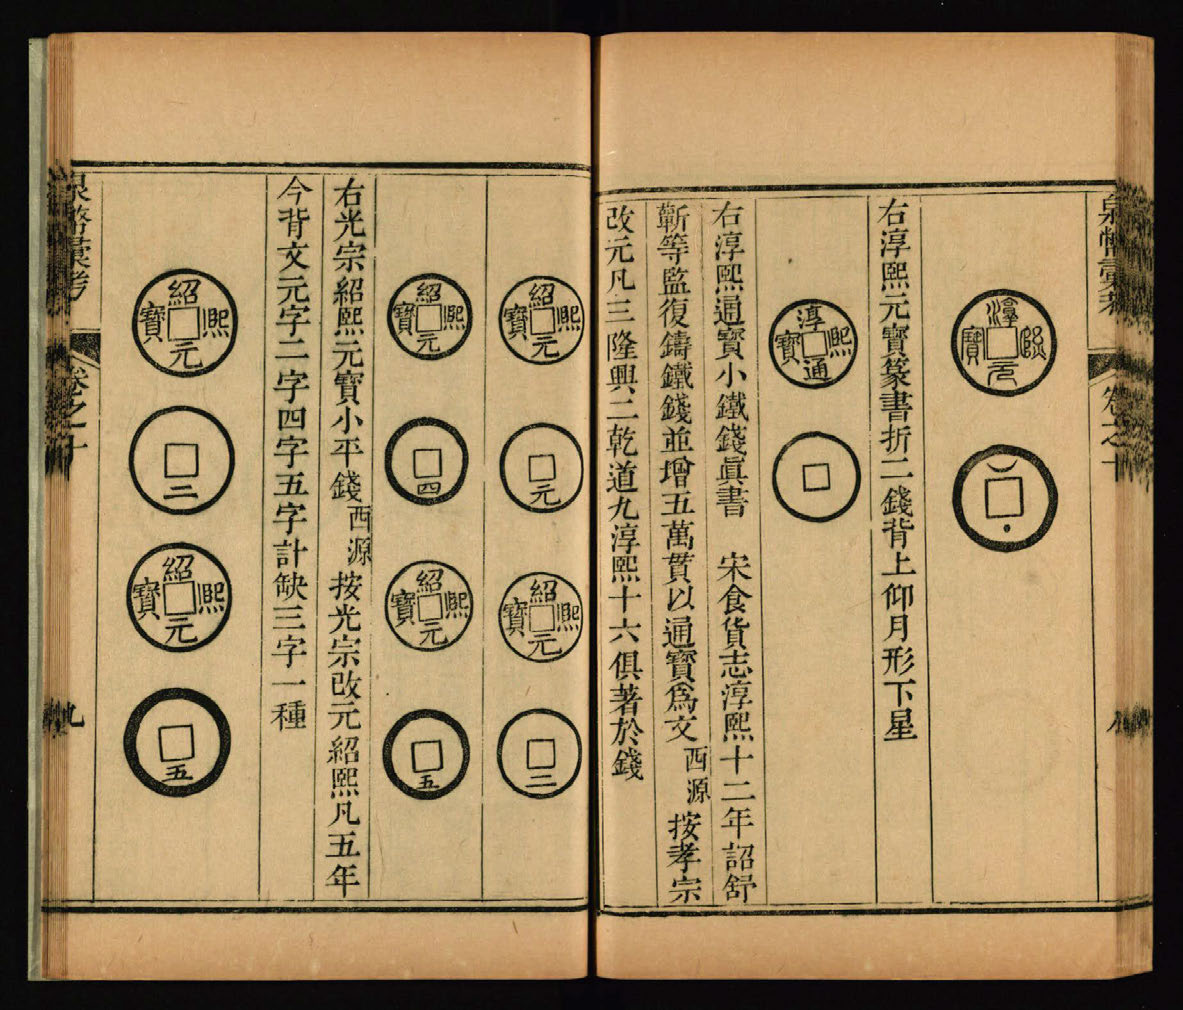 泉幣彙考
卷之十
淳熙元寶
右淳熙元寶篆書折二錢背上仰月形下星
淳熙通寶
右淳熙通寶小鐵錢眞書　宋食貨志淳熙十二年詔舒
蘄等監復鑄鐵錢並增五萬貫以通寶爲文西源按孝宗
改元凡三隆興二乾道九淳熙十六俱著於錢
紹熙元寶
元
紹熙元寶
二
紹熙元寶
四
紹熙元寶
五
右光宗紹熙元寶小平錢西源按光宗改元紹熙凡五年
今背文元字二字四字五字計缺三字一種
紹熙元寶
二
紹熙元寶
五
泉幣彙考
卷之十
九